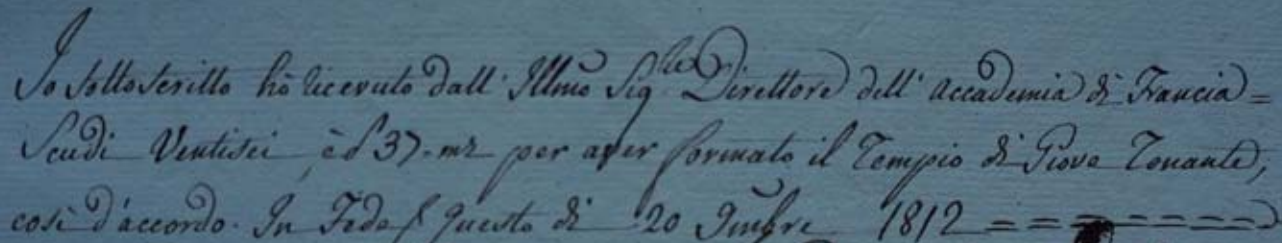 Io sottoscritto hò ricevuto dall' Illmo Sig.re Direttore dell' Accademia di Francia =
Scudi Ventisei, è 37. mz per aver formato il Tempio di Giove Tonante,
così d'accordo. In Fede Questo di 20 9mbre 1812 = = = = = = =